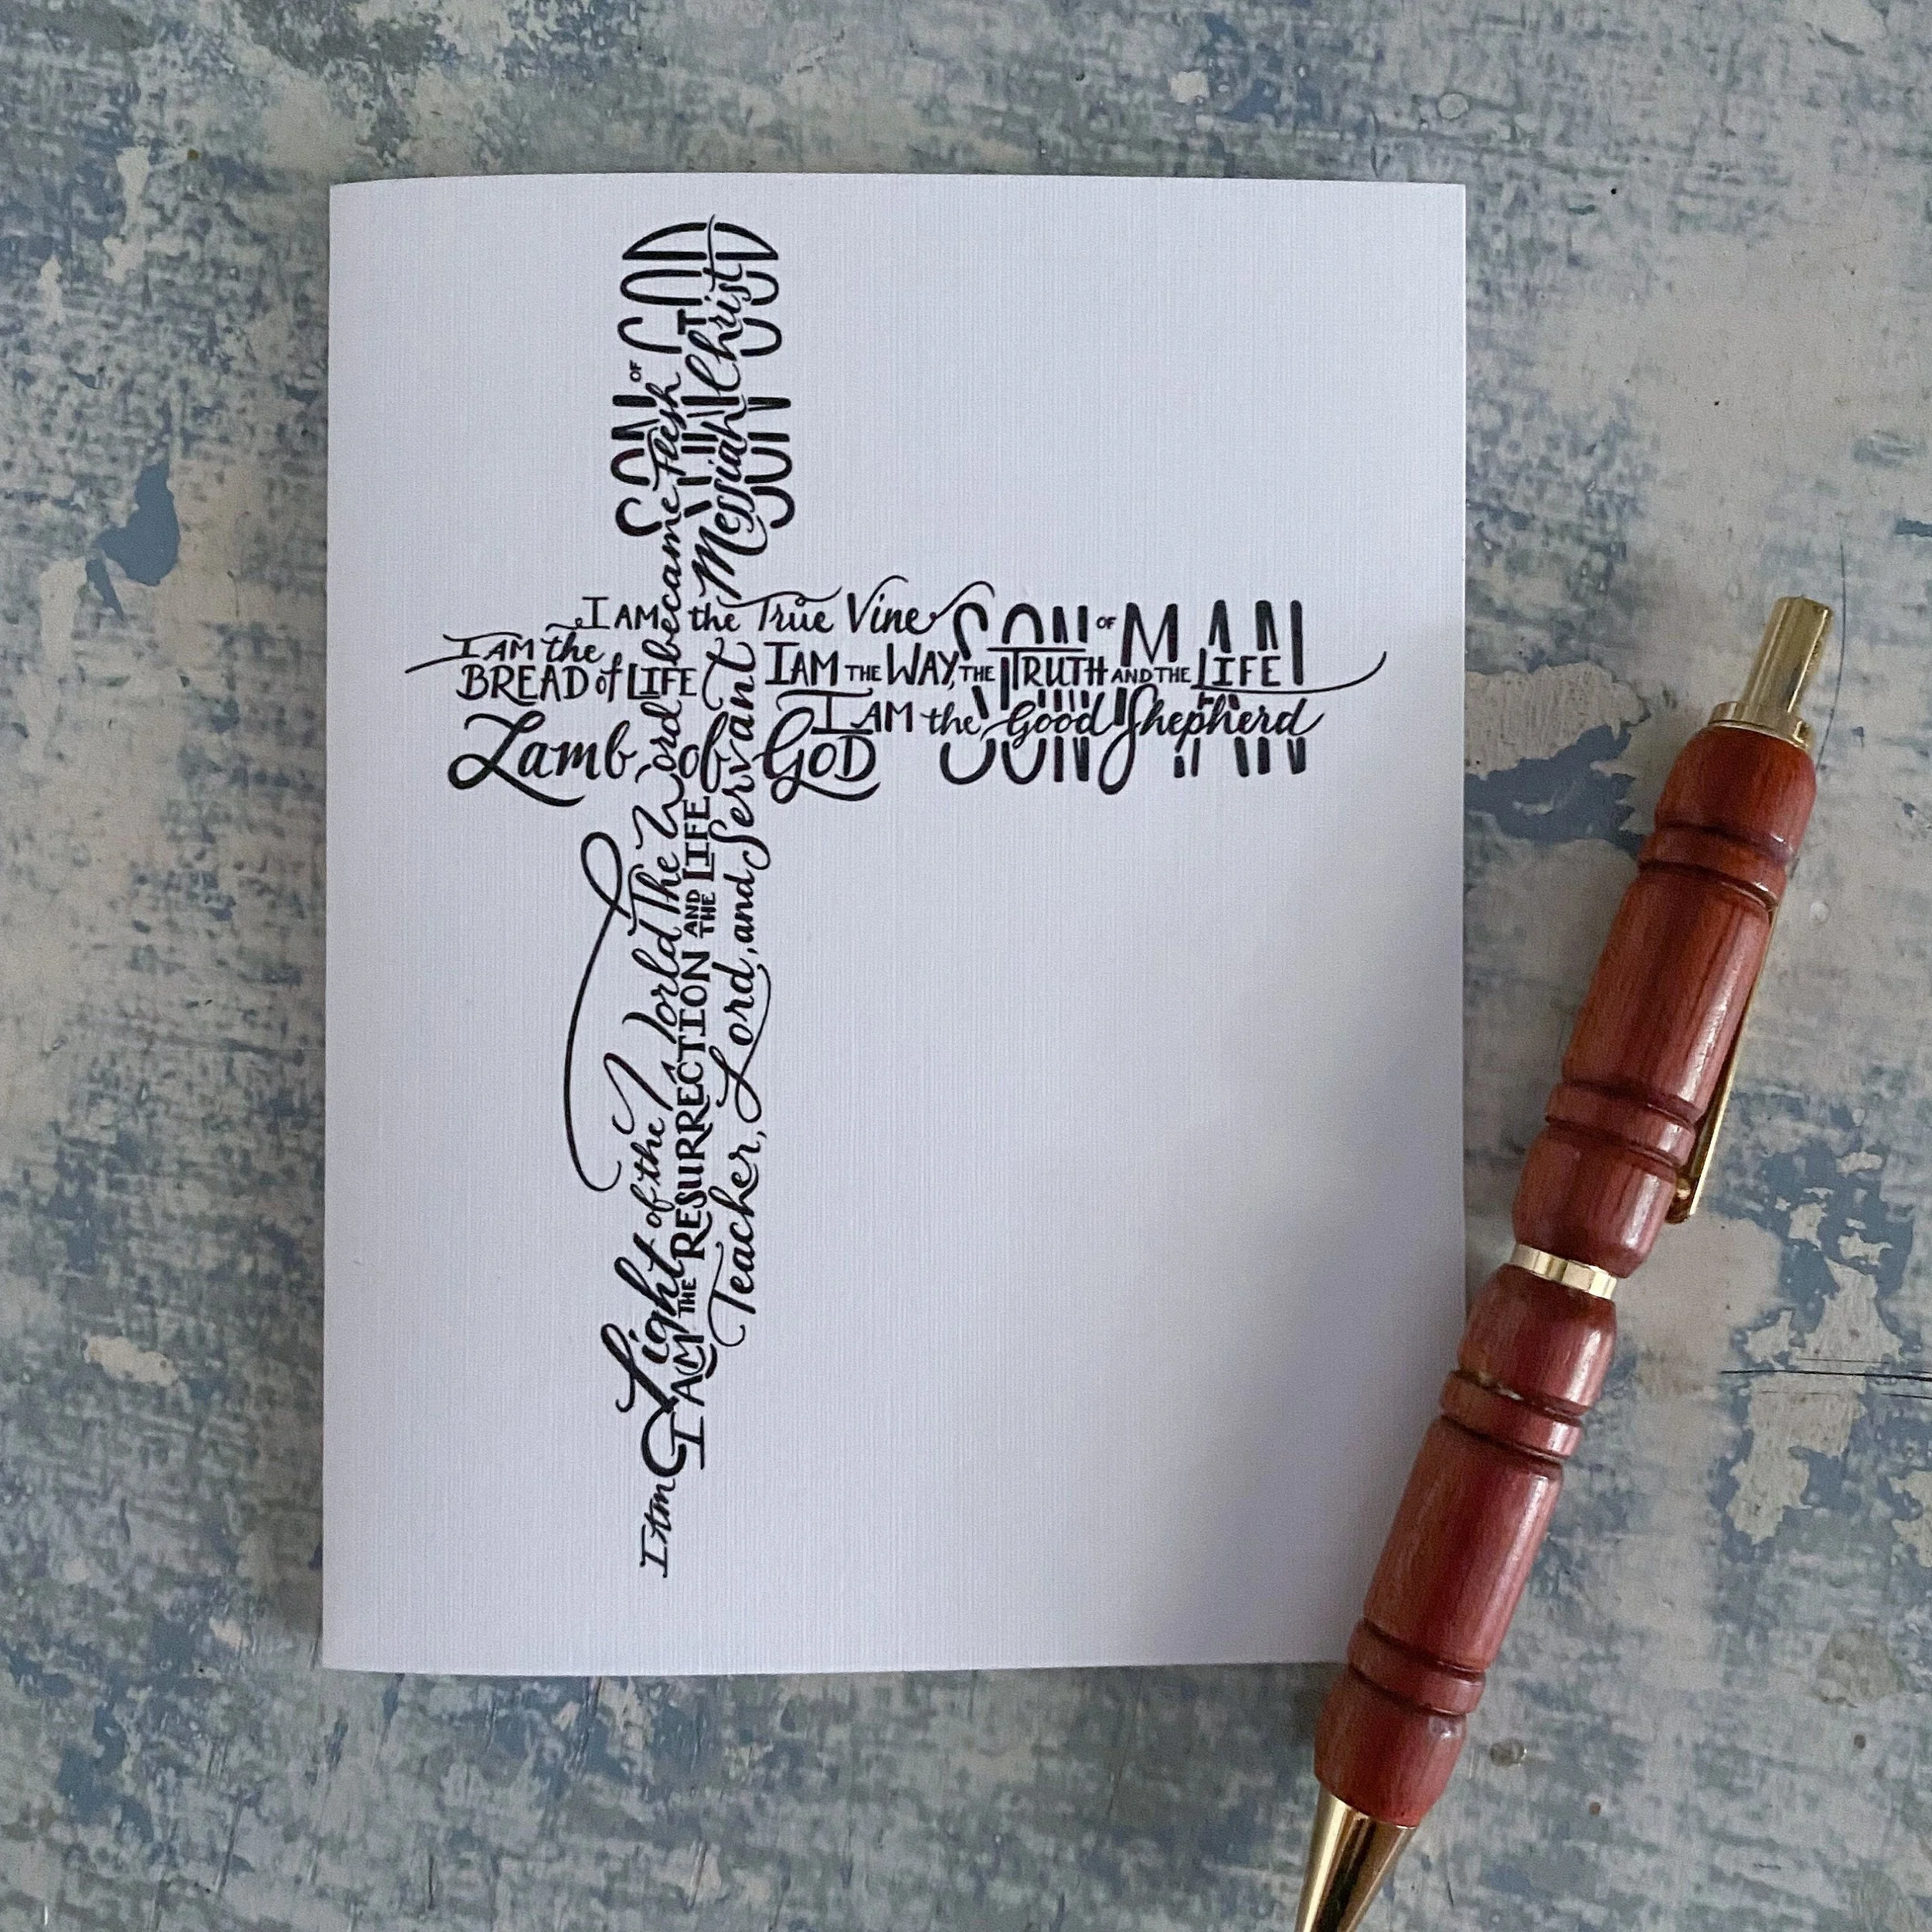 SON OF GOD
Messiah Christ
I AM the True Vine
SON OF MAN
I AM the
BREAD of LIFE
I AM THE WAY, THE TRUTH AND THE LIFE
I AM the Good Shepherd
Lamb of GOD
I AM Light of the World
The Word became Flesh
I AM THE RESURRECTION AND THE LIFE
Teacher, Lord, and Servant